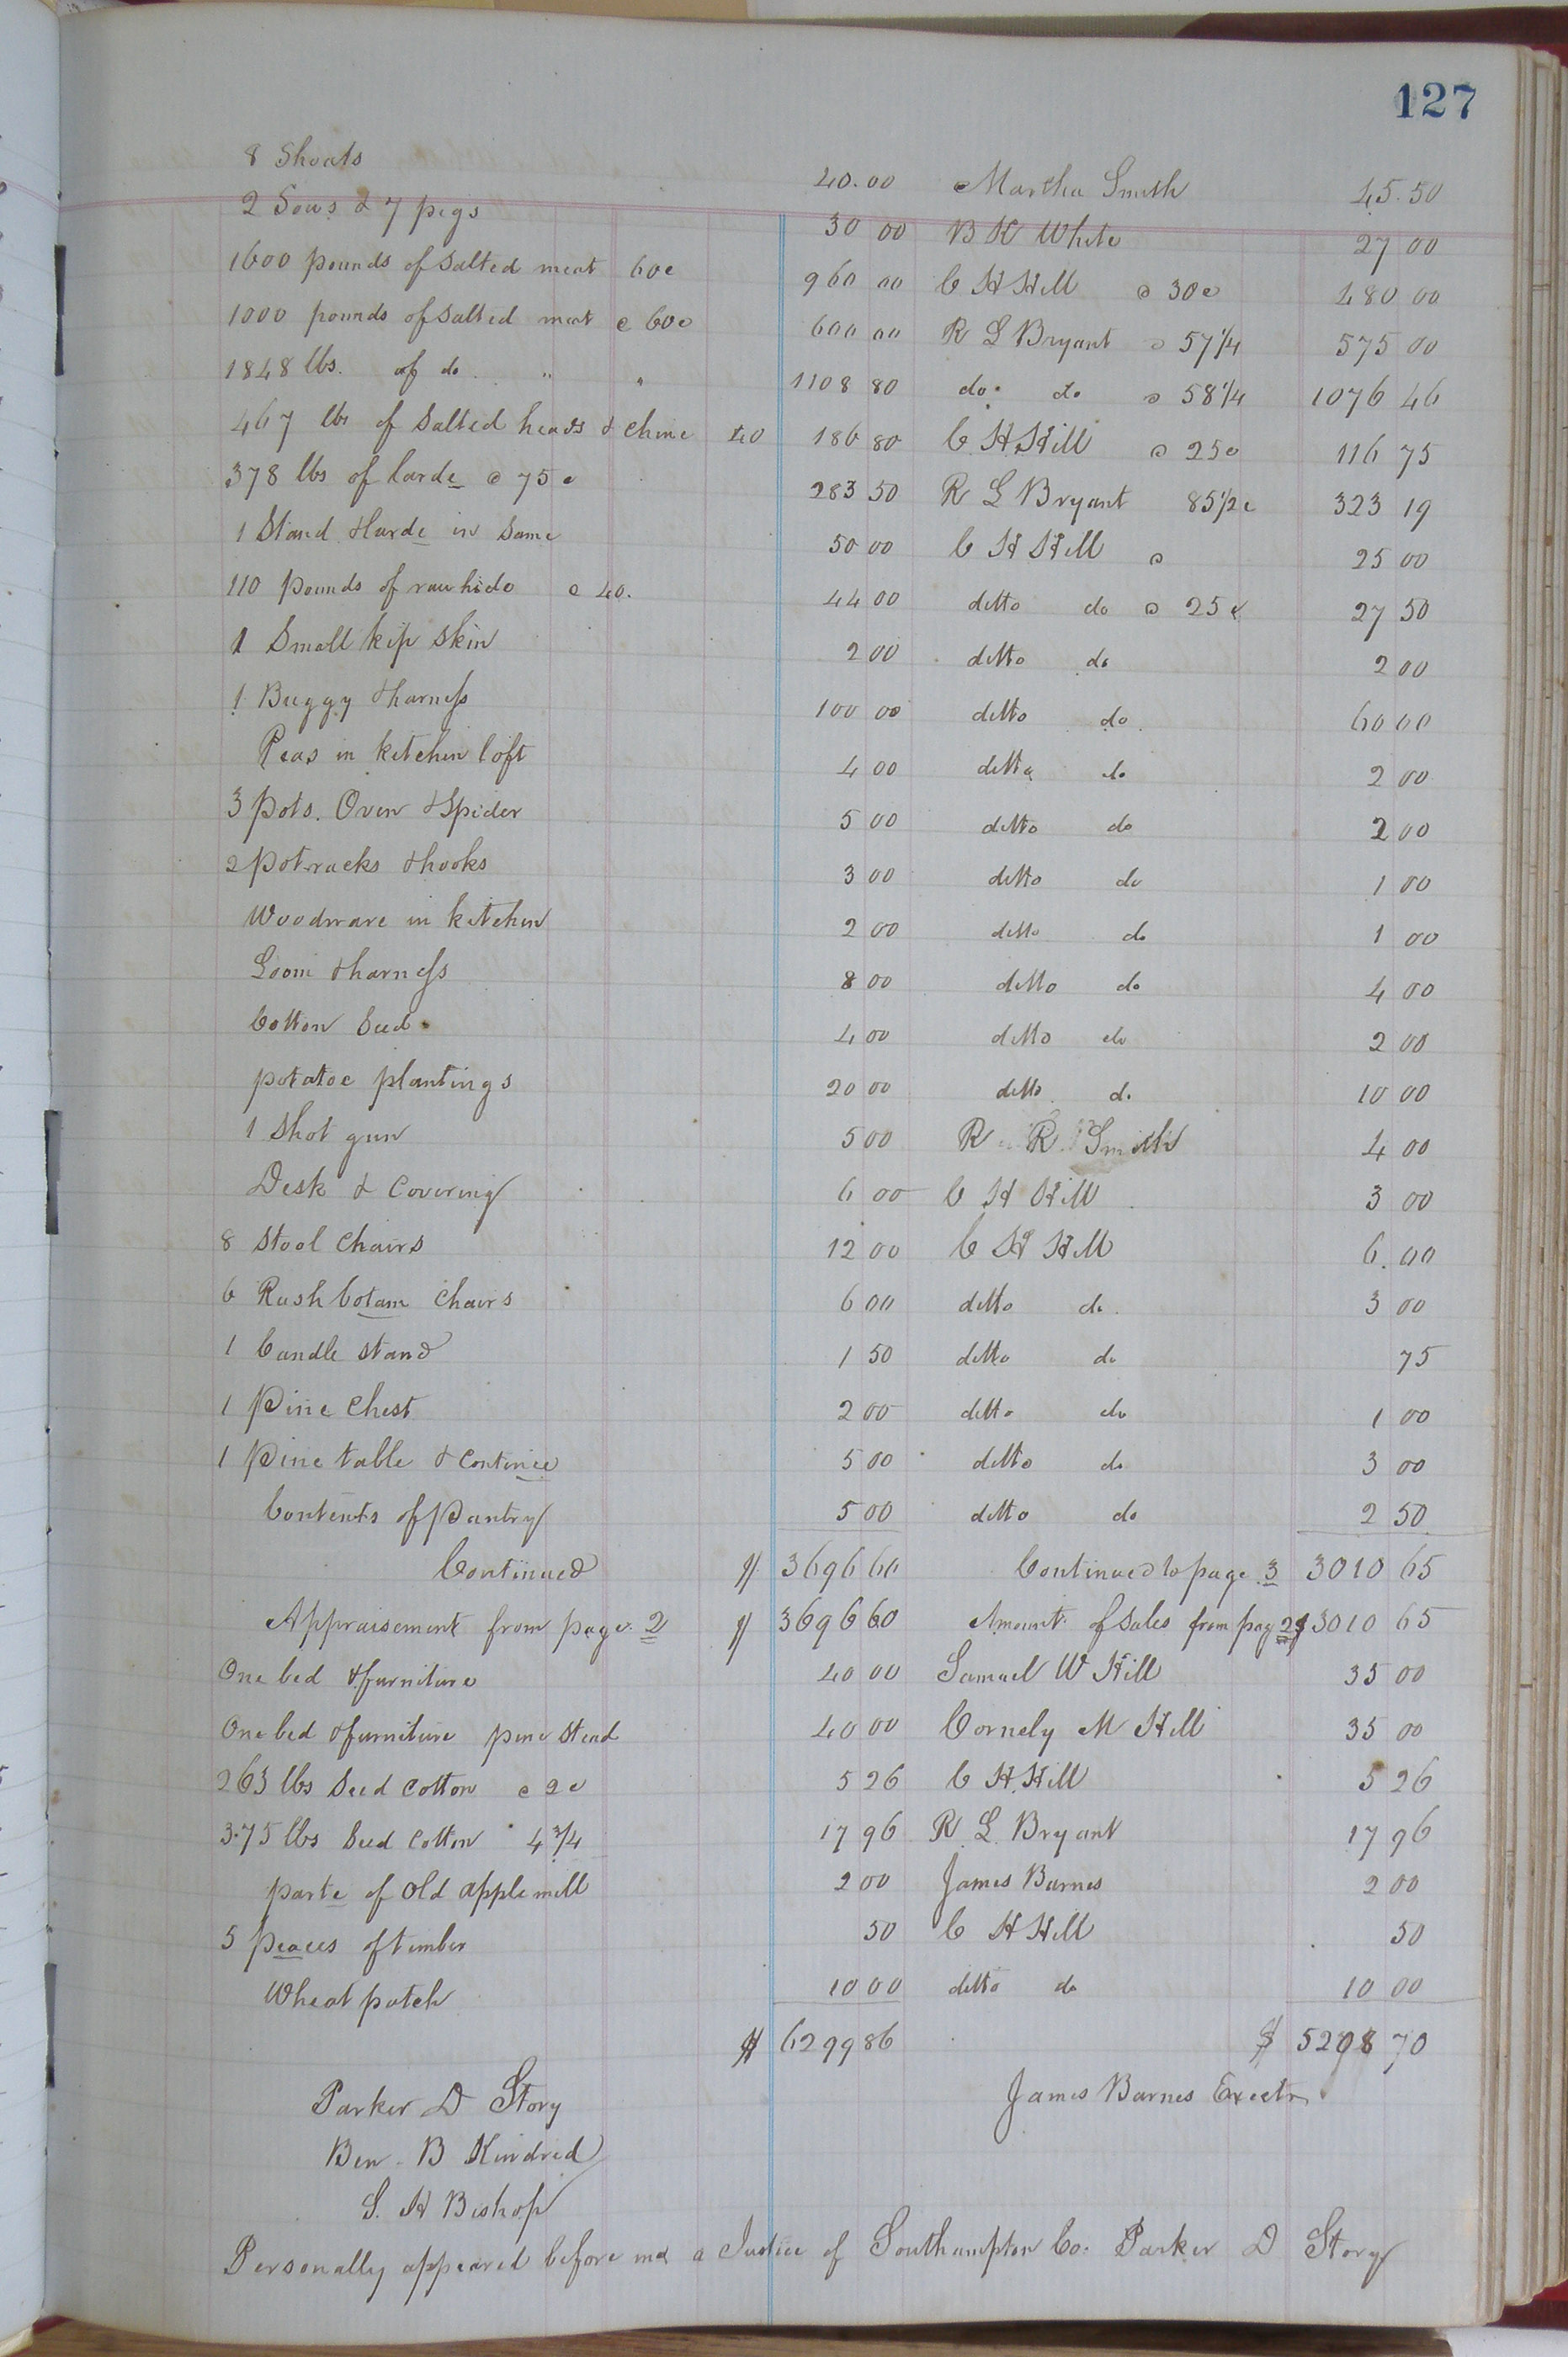 127
8 Shoats 40.00 Martha Smith 45.50
2 Sows & 7 pigs 30 00 B K White 27 00
1600 pounds of Salted meat 60c 960 00 C H Hill @ 30c 480 00
1000 pounds of Salted meat @ 60c 600 00 R L Bryant @ 57 1/4 575 00
1848 lbs. of do. " " 1108 80 do. do @ 58 1/4 1076 46
467 lbs of Salted heads & chine 40 186 80 C H Hill @ 25c 116 75
378 lbs of larde @ 75c 283 50 R L Bryant 85 1/2c 323 19
1 Stand & larde in Same 50 00 C H Hill @ 25 00
110 pounds of rawhide @ 40. 44 00 ditto do @ 25c 27 50
1 Small kip Skin 2 00 ditto do 2 00
1 Buggy & harness 100 00 ditto do 60 00
Peas in kitchen loft 4 00 ditto do 2 00
3 pots. Oven & Spider 5 00 ditto do 2 00
2 pot racks & hooks 3 00 ditto do 1 00
Woodware in kitchen 2 00 ditto do 1 00
Loom & harness 8 00 ditto do 4 00
Cotton Seed 4 00 ditto do 2 00
potatoe plantings 20 00 ditto do 10 00
1 Shot gun 5 00 R R Smith 4 00
Desk & Covering 6 00 C H Hill 3 00
8 Stool Chairs 12 00 C H Hill 6.00
6 Rush botam Chairs 6 00 ditto do. 3 00
1 Candle Stand 1 50 ditto do 75
1 Pine Chest 2 00 ditto do 1 00
1 Pine table & 5 00 ditto do 3 00
Contents of Pantry 5 00 ditto do 2 50
Continued $ 3696 60 Continued to page 3 3010 65
Appraisement from page 2 $ 3696 60 Amount of Sales from pag 2 $ 3010 65
One bed & furniture 40 00 Samuel W Hill 35 00
One bed & furniture pine Stead 40 00 Cornely M Hill 35 00
263 lbs Seed Cotton @ 2c 5 26 C H Hill 5 26
375 lbs Seed Cotton 4 3/4 17 96 R. L. Bryant 17 96
parte of old apple mill 2 00 James Barnes 2 00
5 peaces of timber 50 C H Hill 50
Wheat patch 10 00 ditto do 10 00
$ 6299 86 $ 5298 70
Parker D Story James Barnes Exectr.
Ben. B Kindred
S. H Bishop
Personally appeared before me a Justice of Southampton Co. Parker D Story